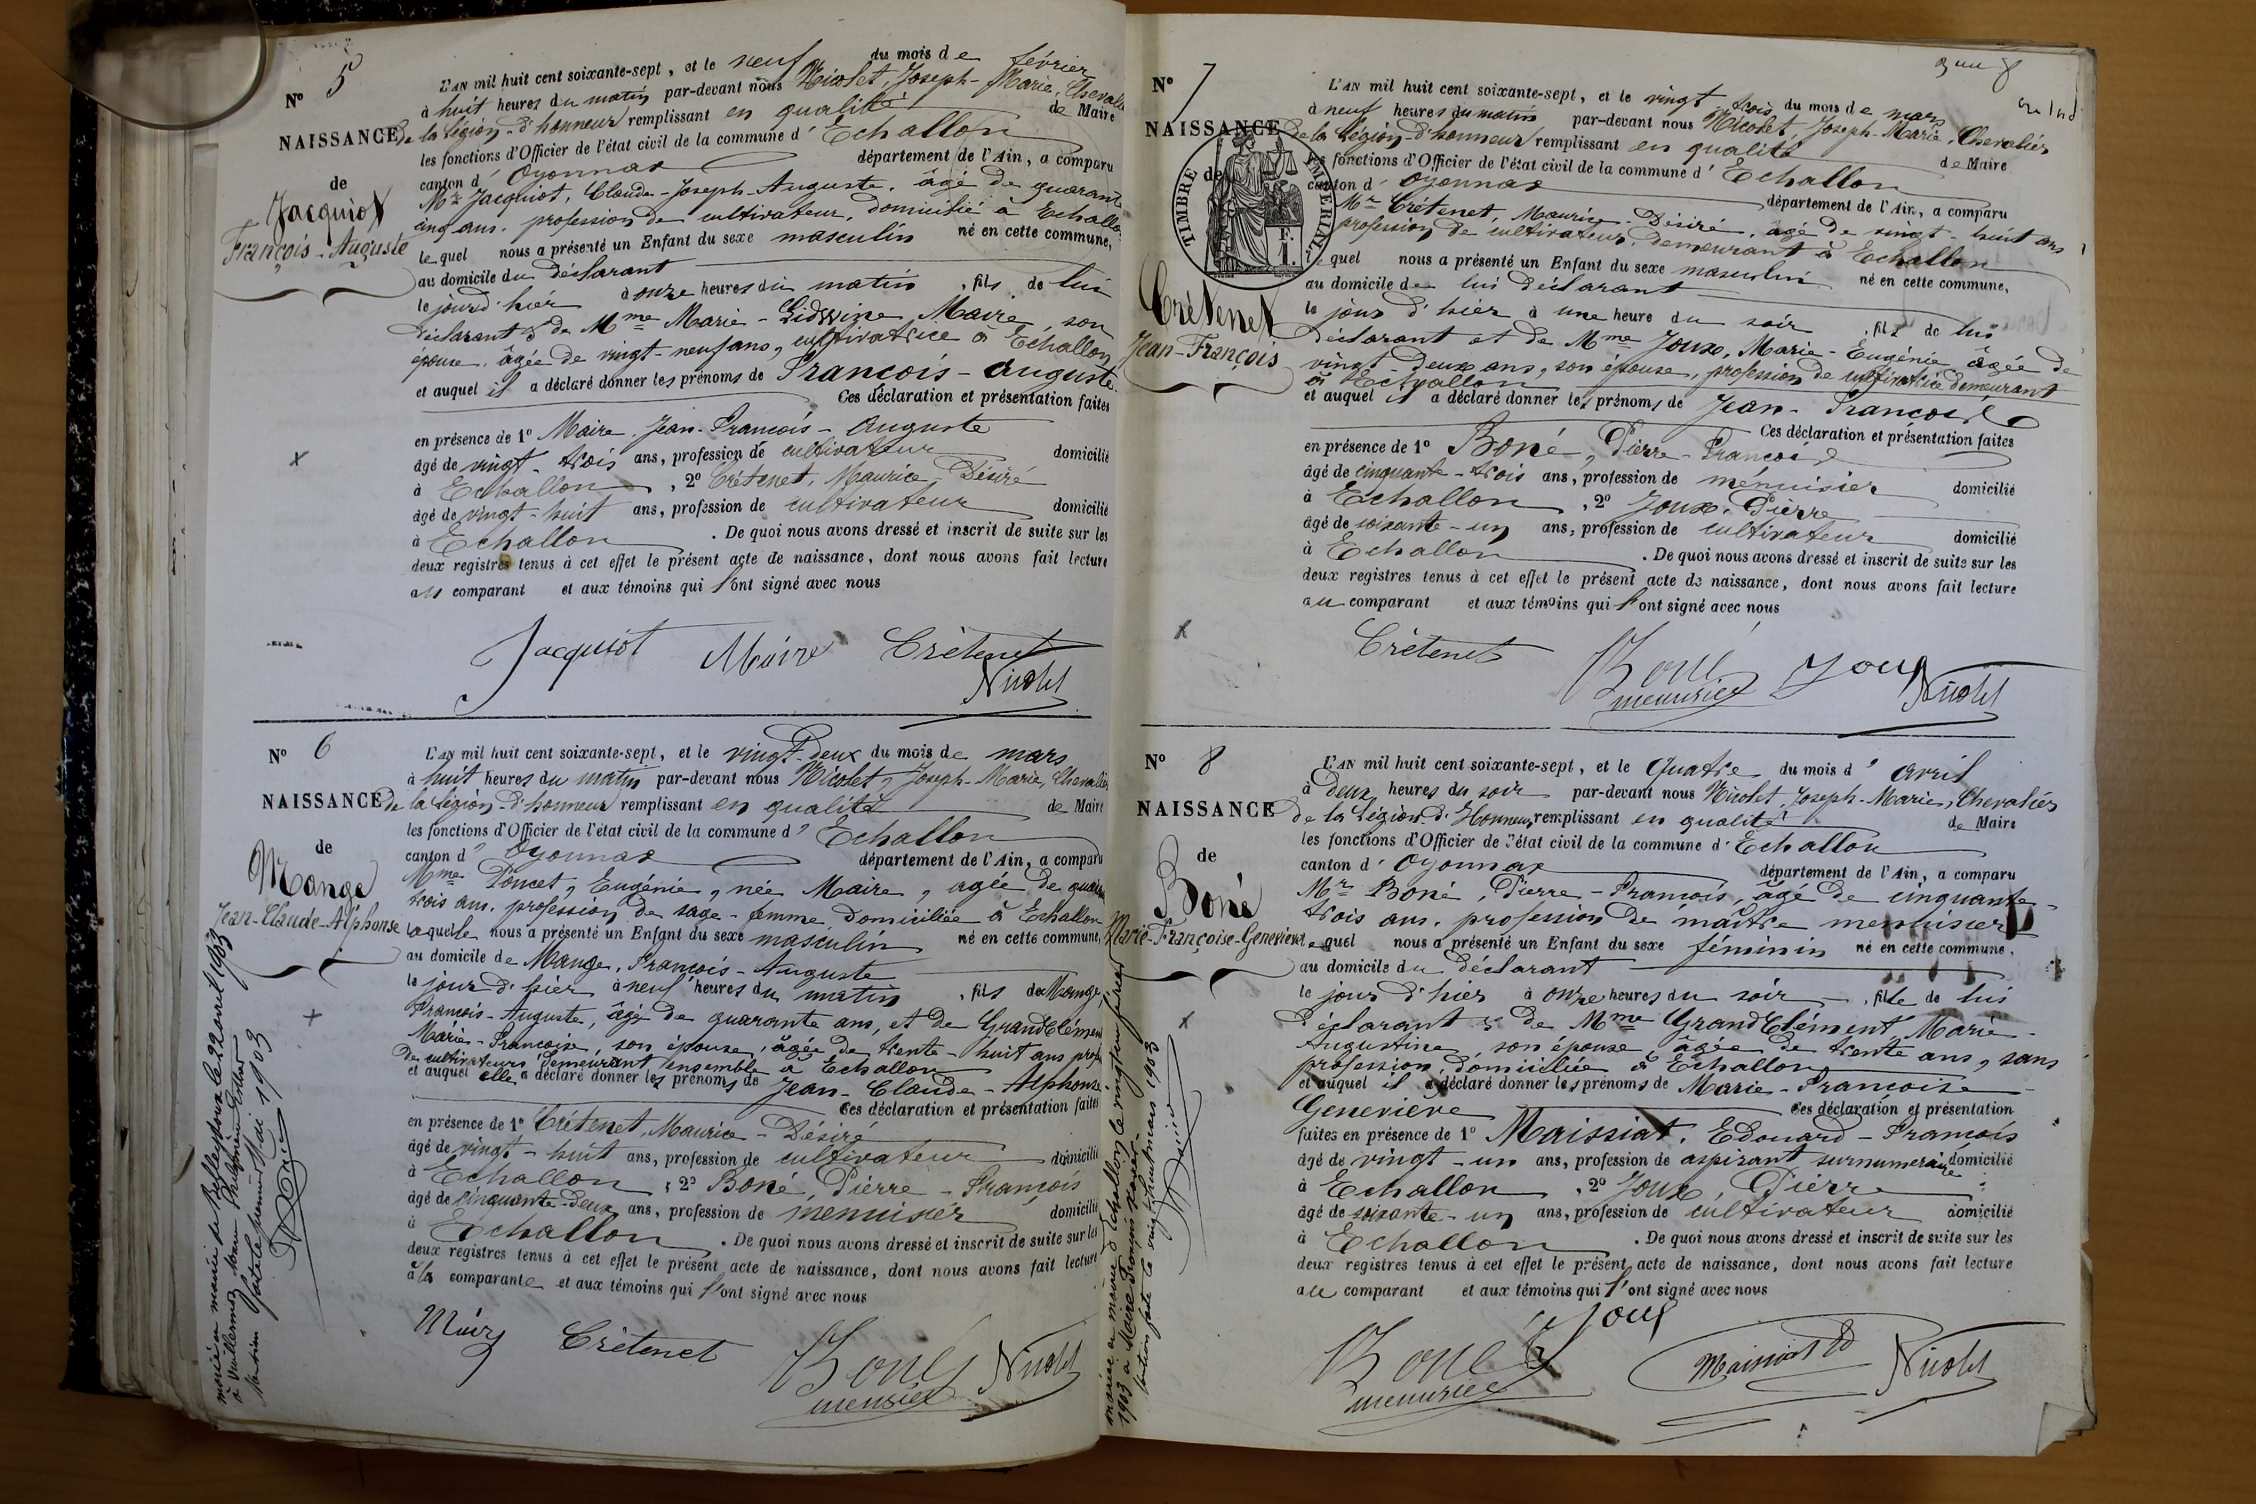 N° 5
NAISSANCE
de
Jacquiot
François-Auguste
L'AN mil huit cent soixante-sept, et le neuf du mois de février
à huit heures du matin par-devant nous Nicolet, Joseph-Marie, Chevalier
de la légion-d'honneur remplissant en qualité de Maire
les fonctions d'Officier de l'état civil de la commune d'Echallon
canton d'Oyonnax département de l'Ain, a comparu
Mr Jacquiot, Claude-Joseph-Auguste, âgé de quarante
cinq ans, profession de cultivateur, domicilié à Echallon
lequel nous a présenté un Enfant du sexe masculin né en cette commune,
au domicile du déclarant
le jourd'hier à onze heures du matin, fils de lui
déclarant & de Mme Marie-Lidwine Maire son
épouse, âgée de vingt-neuf ans, cultivatrice à Echallon
et auquel il a déclaré donner les prénoms de François-Auguste
Ces déclaration et présentation faites
en présence de 1° Maire, Jean-François-Auguste
âgé de vingt-trois ans, profession de cultivateur domicilié
à Echallon, 2° Crétenet, Maurice-Désiré
âgé de vingt-huit ans, profession de cultivateur domicilié
à Echallon. De quoi nous avons dressé et inscrit de suite sur les
deux registres tenus à cet effet le présent acte de naissance, dont nous avons fait lecture
au comparant et aux témoins qui l'ont signé avec nous
Jacquiot Maire Crétenet
Nicolet
N° 6
NAISSANCE
de
Mange
Jean-Claude-Alphonse
L'AN mil huit cent soixante-sept, et le vingt-deux du mois de mars
à huit heures du matin par-devant nous Nicolet, Joseph-Marie, Chevalier
de la légion-d'honneur remplissant en qualité de Maire
les fonctions d'Officier de l'état civil de la commune d'Echallon
canton d'Oyonnax département de l'Ain, a comparu
Mme Poncet, Eugénie, née Maire, agée de
trois ans, profession de sage-femme domiciliée à Echallon
laquelle nous a présenté un Enfant du sexe masculin né en cette commune,
au domicile de Mange, François-Auguste
le jour d'hier à neuf heures du matin, fils de Mange
François-Auguste, âgé de quarante ans, et de GrandClément
Marie-Françoise, son épouse, âgée de trente-huit ans
de cultivateurs demeurant ensemble à Echallon
et auquel elle a déclaré donner les prénoms de Jean-Claude-Alphonse
Ces déclaration et présentation faites
en présence de 1° Crétenet, Maurice-Désiré
âgé de vingt-huit ans, profession de cultivateur domicilié
à Echallon, 2° Boné, Pierre-François
âgé de cinquante-deux ans, profession de menuisier domicilié
à Echallon. De quoi nous avons dressé et inscrit de suite sur les
deux registres tenus à cet effet le présent acte de naissance, dont nous avons fait lecture
à la comparante et aux témoins qui l'ont signé avec nous
Maire Crétenet Boné Nicolet
menuisier
marié en mairie de Belleydoux le 22 avril 1903
1903
N° 7
NAISSANCE
de
TIMBRE IMPERIAL
F.
1.
Crétenet
Jean-François
L'AN mil huit cent soixante-sept, et le vingt-trois du mois de mars
à neuf heures du matin par-devant nous Nicolet, Joseph-Marie, Chevalier
de la Légion-d'honneur remplissant en qualité de Maire
les fonctions d'Officier de l'état civil de la commune d'Echallon
canton d'Oyonnax département de l'Ain, a comparu
Mr Crétenet, Maurice-Désiré, âgé de vingt-huit ans
profession de cultivateur, demeurant à Echallon
lequel nous a présenté un Enfant du sexe masculin né en cette commune,
au domicile de lui déclarant
le jour d'hier à une heure du soir, fils de lui
déclarant et de Mme Joux, Marie-Eugénie âgée de
vingt-deux ans, son épouse, profession de cultivatrice demeurant
à Echallon
et auquel il a déclaré donner les prénoms de Jean-François
Ces déclaration et présentation faites
en présence de 1° Boné, Pierre-François
âgé de cinquante-trois ans, profession de ménuisier domicilié
à Echallon, 2° Joux, Pierre
âgé de soixante-un ans, profession de cultivateur domicilié
à Echallon. De quoi nous avons dressé et inscrit de suite sur les
deux registres tenus à cet effet le présent acte de naissance, dont nous avons fait lecture
au comparant et aux témoins qui l'ont signé avec nous
Crétenet Boné Joux
menuisier Nicolet
N° 8
NAISSANCE
de
Boné
Marie-Françoise-Genevieve
L'AN mil huit cent soixante-sept, et le Quatre du mois d'avril
à deux heures du soir par-devant nous Nicolet, Joseph-Marie, Chevalier
de la Légion d'Honneur remplissant en qualité de Maire
les fonctions d'Officier de l'état civil de la commune d'Echallon
canton d'Oyonnax département de l'Ain, a comparu
Mr Boné, Pierre-François, âgé de cinquante-
trois ans, profession de maître menuisier
lequel nous a présenté un Enfant du sexe féminin né en cette commune,
au domicile du déclarant
le jour d'hier à onze heures du soir, fille de lui
déclarant & de Mme GrandClément, Marie-
Augustine, son épouse âgée de trente ans, sans
profession, domiciliée à Echallon
et auquel il a déclaré donner les prénoms de Marie-Françoise
Geneviève Ces déclaration et présentation
faites en présence de 1° Maissiat, Edouard-François
âgé de vingt-un ans, profession de aspirant surnumeraire domicilié
à Echallon, 2° Joux, Pierre
âgé de soixante-un ans, profession de cultivateur domicilié
à Echallon. De quoi nous avons dressé et inscrit de suite sur les
deux registres tenus à cet effet le présent acte de naissance, dont nous avons fait lecture
au comparant et aux témoins qui l'ont signé avec nous
Joux
Boné Maissiat Ed Nicolet
menuisier
mariée en mairie d'Echallon le vingt un février
1903 à Maire François Xavier
mention faite le vingt huit mars 1903